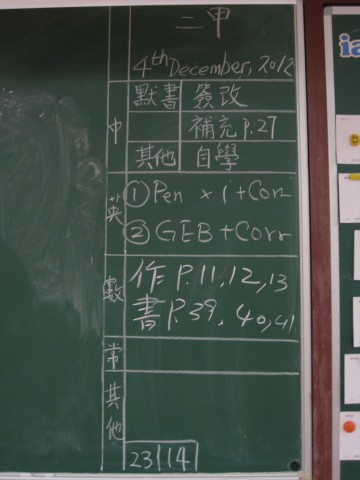 二甲
4th December, 2012
中 默書 簽改
補充 P.27
其他 自學
英 ① Pen x 1 + Corr
② GEB + Corr
數 作 P.11, 12, 13
書 P.39, 40, 41
常
其他
23 14